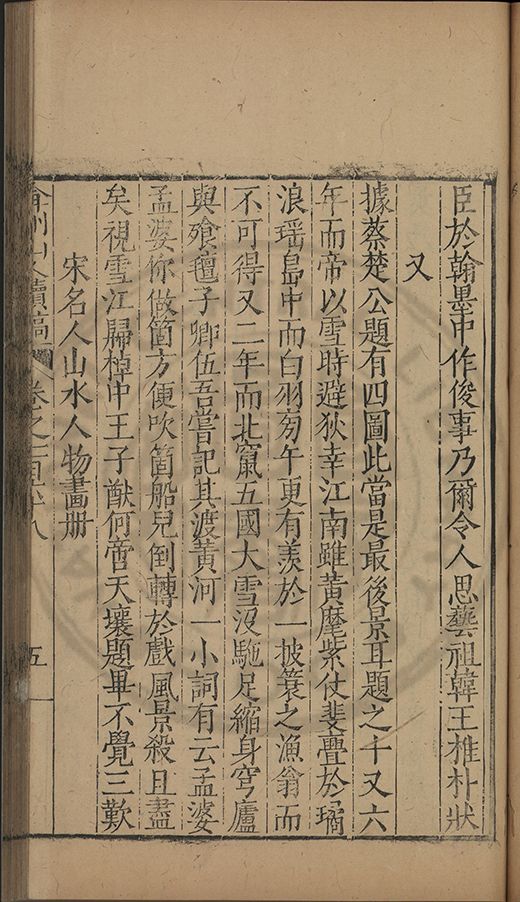 臣於翰墨中作俊事乃爾令人思藝祖韓王椎朴狀
又
據蔡楚公題有四圖此當是最後景耳題之千又六
年而帝以雪時避狄幸江南雖黃麾紫仗斐亹於璚
浪瑶島中而白羽旁午更有羨於一披簑之漁翁而
不可得又二年而北竄五國大雪没駝足縮身穹廬
與飱氊子卿伍吾嘗記其渡黃河一小詞有云孟婆
孟婆你做箇方便吹箇船兒倒轉於戲風景殺且盡
矣視雪江歸棹中王子猷何啻天壤題畢不覺三歎
宋名人山水人物畫册
弇州山人續稿 卷之一百六十八 五